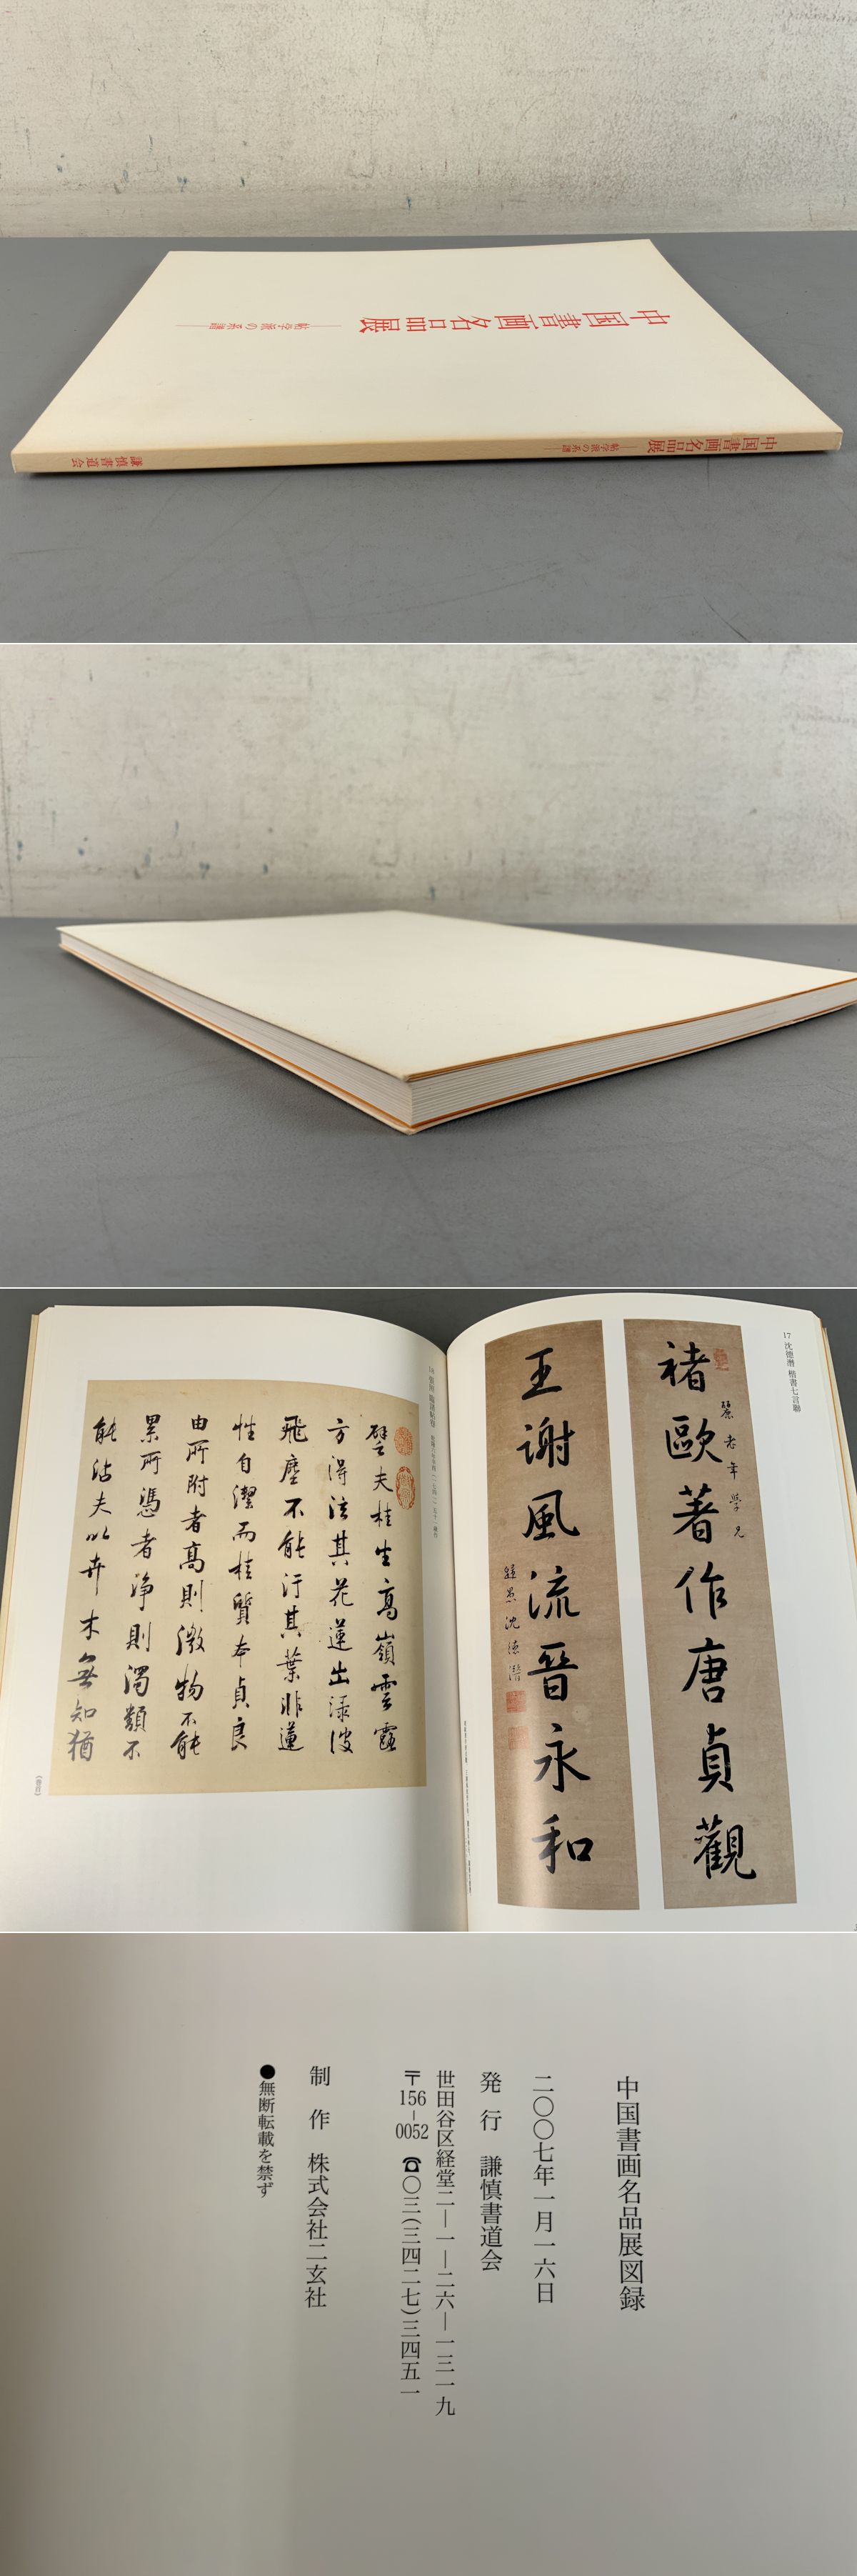 中国書画名品展
帖学派の系譜
中国書画名品展
帖学派の系譜
謙慎書道会
17 沈徳潜 楷書七言聯
褚歐著作唐貞觀
麓老年學兄
王謝風流晉永和
沈德潛
譬夫桂生高嶺雲露
方得泫其花蓮出淥波
飛塵不能汙其葉非蓮
性自潔而桂質本貞良
由所附者高則微物不能
累所憑者淨則濁類不
能沾夫以卉木無知猶
(巻首)
中国書画名品展図録
二〇〇七年一月一六日
発行 謙慎書道会
世田谷区経堂二―一―二六―一三一九
〒156-0052 ☎〇三(三四二七)三四五一
制作 株式会社二玄社
●無断転載を禁ず